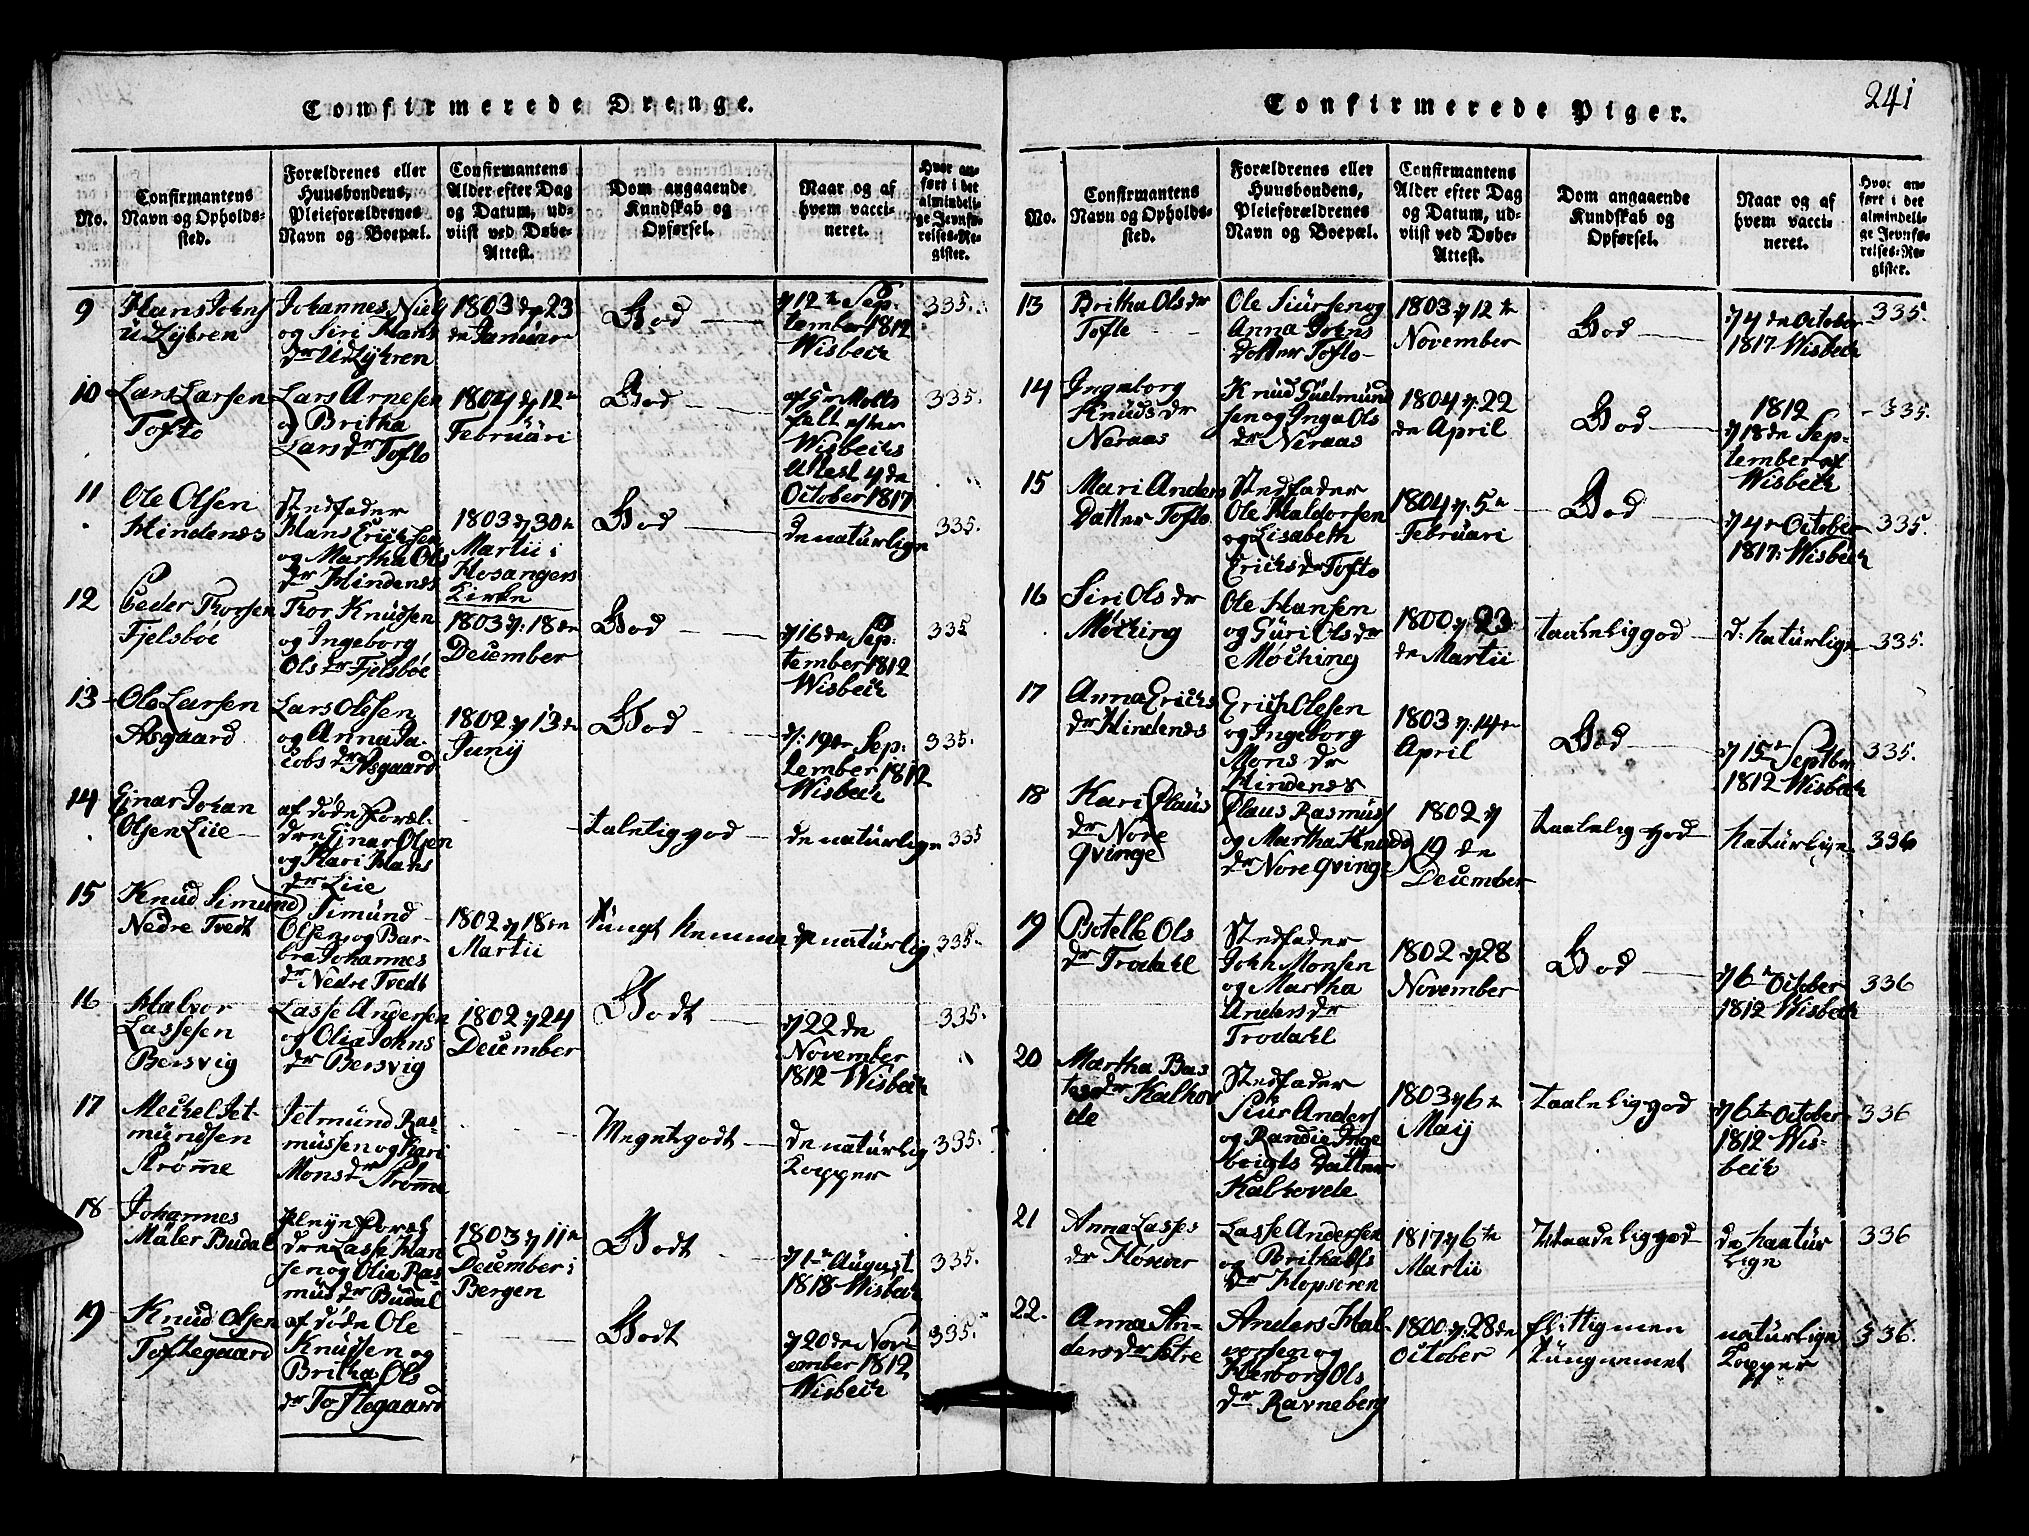 241
Confirmerede Drenge.
No.
Confirmantens
Navn og Opholds-
sted.
Forældrenes eller
Huusbondens,
Pleieforældrenes
Navn og Boepæl.
Confirmantens
Alder efter Dag
og Datum, ud-
viist ved Døbe-
Attest.
Dom angaaende
Kundskab og
Opførsel.
Naar og af
hvem vacci-
neret.
Hvor an-
ført i det
almindeli-
ge Jevnfø-
relses-Re-
gister.
9
Hans Johns
Johannes Niels
og Siri Hans
dr
1803 d 23
de Januar
God
d 12te Sep-
tember 1812
Wisbech
335.
10
Lars Larsen
Tofto
Lars Arnesen
og Britha
Lars dr Tofto
1804 d 12te
Februari
God
af
efter
Wisbechs
Attest 4 de
October 1817
335.
11
Ole Olsen
Hindenes
Stedfader
Hans Erichsen
og Martha Ols
dr Hindenes
1803 d 30te
Martii i
Hosangers
Kirke
God
de naturlige
335.
12
Peder Thorsen
Fjelsbøe
Thor Knudsen
og Ingeborg
Ols dr Fjelsbøe
1803 d: 18de
December
God
d 16de Sep-
tember 1812
Wisbech
335
13
Ole Larsen
Asgaard
Lars Olesen
og Anna Ja-
cobs dr Asgaard
1802 d 13de
Junij
God
d: 19de Sep-
tember 1812
Wisbech
335.
14
Ejnar Johan
Olsen Liie
af døde Foræl-
dre Ejnar Olsen
og Kari Hans
dr Liie
talelig god
de naturlige
335
15
Knud Simund
Nedre Tvedt
Simund
Olsen og Bar-
bra Johannes
dr Nedre Tvedt
1802 d 18de
Martii
tungt Nemme
de naturlig
335.
16
Halvor
Lassesen
Bersvig
Lasse Andersen
og Olia Johns
dr Bersvig
1802 d 24
December
Godt
d 22de
November
1812 Wisbech
335.
17
Mechel Jet-
mundsen
Strømme
Jetmund Ras-
mussen og Kari
Mons dr Strømme
Megetgodt
de naturlig
Kopper
335.
18
Johannes
Maler Budal
Pleye Foræl
dre Lasse Han
sen og Olia Ras-
mus dr Budal
1803 d 11te
December i
Bergen
Godt
d 1te August
1818 Wisbech
335.
19
Knud Olsen
Toftegaard
af døde Ole
Knudsen og
Britha Ols
dr Toftegaard
Godt
d 20de Nov
ember 1812
Wisbech
335.
Confirmerede Piger.
No.
Confirmantens
Navn og Opholds-
sted.
Forældrenes eller
Huusbondens,
Pleieforældrenes
Navn og Boepæl.
Confirmantens
Alder efter Dag
og Datum, ud-
viist ved Døbe-
Attest.
Dom angaaende
Kundskab og
Opførsel.
Naar og af
hvem vacci-
neret.
Hvor an-
ført i det
almindeli-
ge Jevnfø-
relses-Re-
gister.
13
Britha Ols dr
Tofte
Ole Siursen og
Anna Johns
datter Tofto
1803 d 12te
November
God
d 4de October
1817 Wisbech
335.
14
Ingeborg
Knuds dr
Neraas
Knud Gudmund
sen og Inga Ols
dr Neraas
1804 d: 22
de April
God
1812
d 18de Sep-
tember af
Wisbech
335.
15
Mari Anders
Datter Tofto
Stedfader
Ole Haldorsen
og Lisabeth
Erichs dr Tofto
1804 d: 5te
Februari
God
d 4de October
1817: Wisbech
335.
16
Siri Ols dr
Møching
Ole Hansen
og Guri Ols dr
Møching
1800 d: 23
de Martii
taalelig god
d: naturlige
335.
17
Anna Erichs
dr Hindenes
Erich Olesen
og Ingeborg
Mons dr
Hindenes
1803 d: 14de
April
God
d 15te Septbr
1812 Wisbech
335.
18
Kari Claus
dr Nore
Qvinge
Claus Rasmus
og Martha Knuds
dr Nore Qvinge
1802 d
19 de
December
taalelig god
naturlige
336
19
Botelle Ols
dr Trodahl
Stedfader
John Monsen
og Martha
Anders dr
Trodahl
1802 d 28
November
God
d 6te October
1812 Wisbech
336
20
Martha Bas
tes dr Kalhov
de
Stedfader
Siur Anders
og Randie Inge
beigts Datter
Kalhovde
1803 d 6te
i Maij
taalelig god
d 6te October
1812 Wis-
bech
336
21
Anna Lasses
dr
Lasse Andersen
og Britha Ols
dr Hopseren
1817 d 6te
Martii
god
de naatur
lige
336
22.
Anna An-
ders dr Sætre
Anders Hal-
vorsen og
Herborg Ols
dr Ravneberg
1800 d: 28de
October
flittig men
tungnemet
naturlige
Kopper
336.